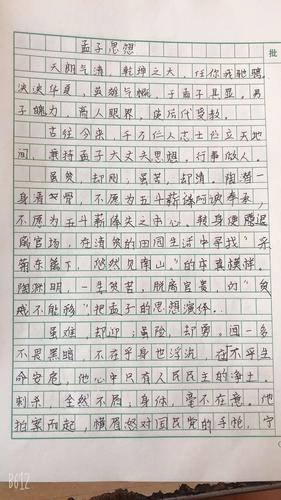 孟子思想
天朗气清，乾坤之大，任你我驰骋。
泱泱华夏，英雄气慨，于孟子其显。男
子魄力，高人眼界，使后代受教。
古往今来，千万仁人志士伫立天地
间，秉持孟子大丈夫思想，行事做人。
虽贫，却刚；虽苦，却清。陶潜一
身看傲骨，不愿为五斗薪体阿谀奉承，
不愿为五斗薪体失之本心。转身便隐退
官场，在清贫的田园生活中寻找"采
菊东篱下，悠然见南山"的本真模样。
陶渊明，一生贫苦，脱离官贵，的"贫
贱不能移"把孟子的思想演绎。
虽难，却迎；虽险，却勇。闻一多
不畏黑暗，不在乎身世浮沉，在不乎生
命安危，他心中只有人民民主的净土。
刺杀，全然不屑；身体，毫不在意。他
拍案而起，横眉怒对国民党的手枪，宁
批
B612